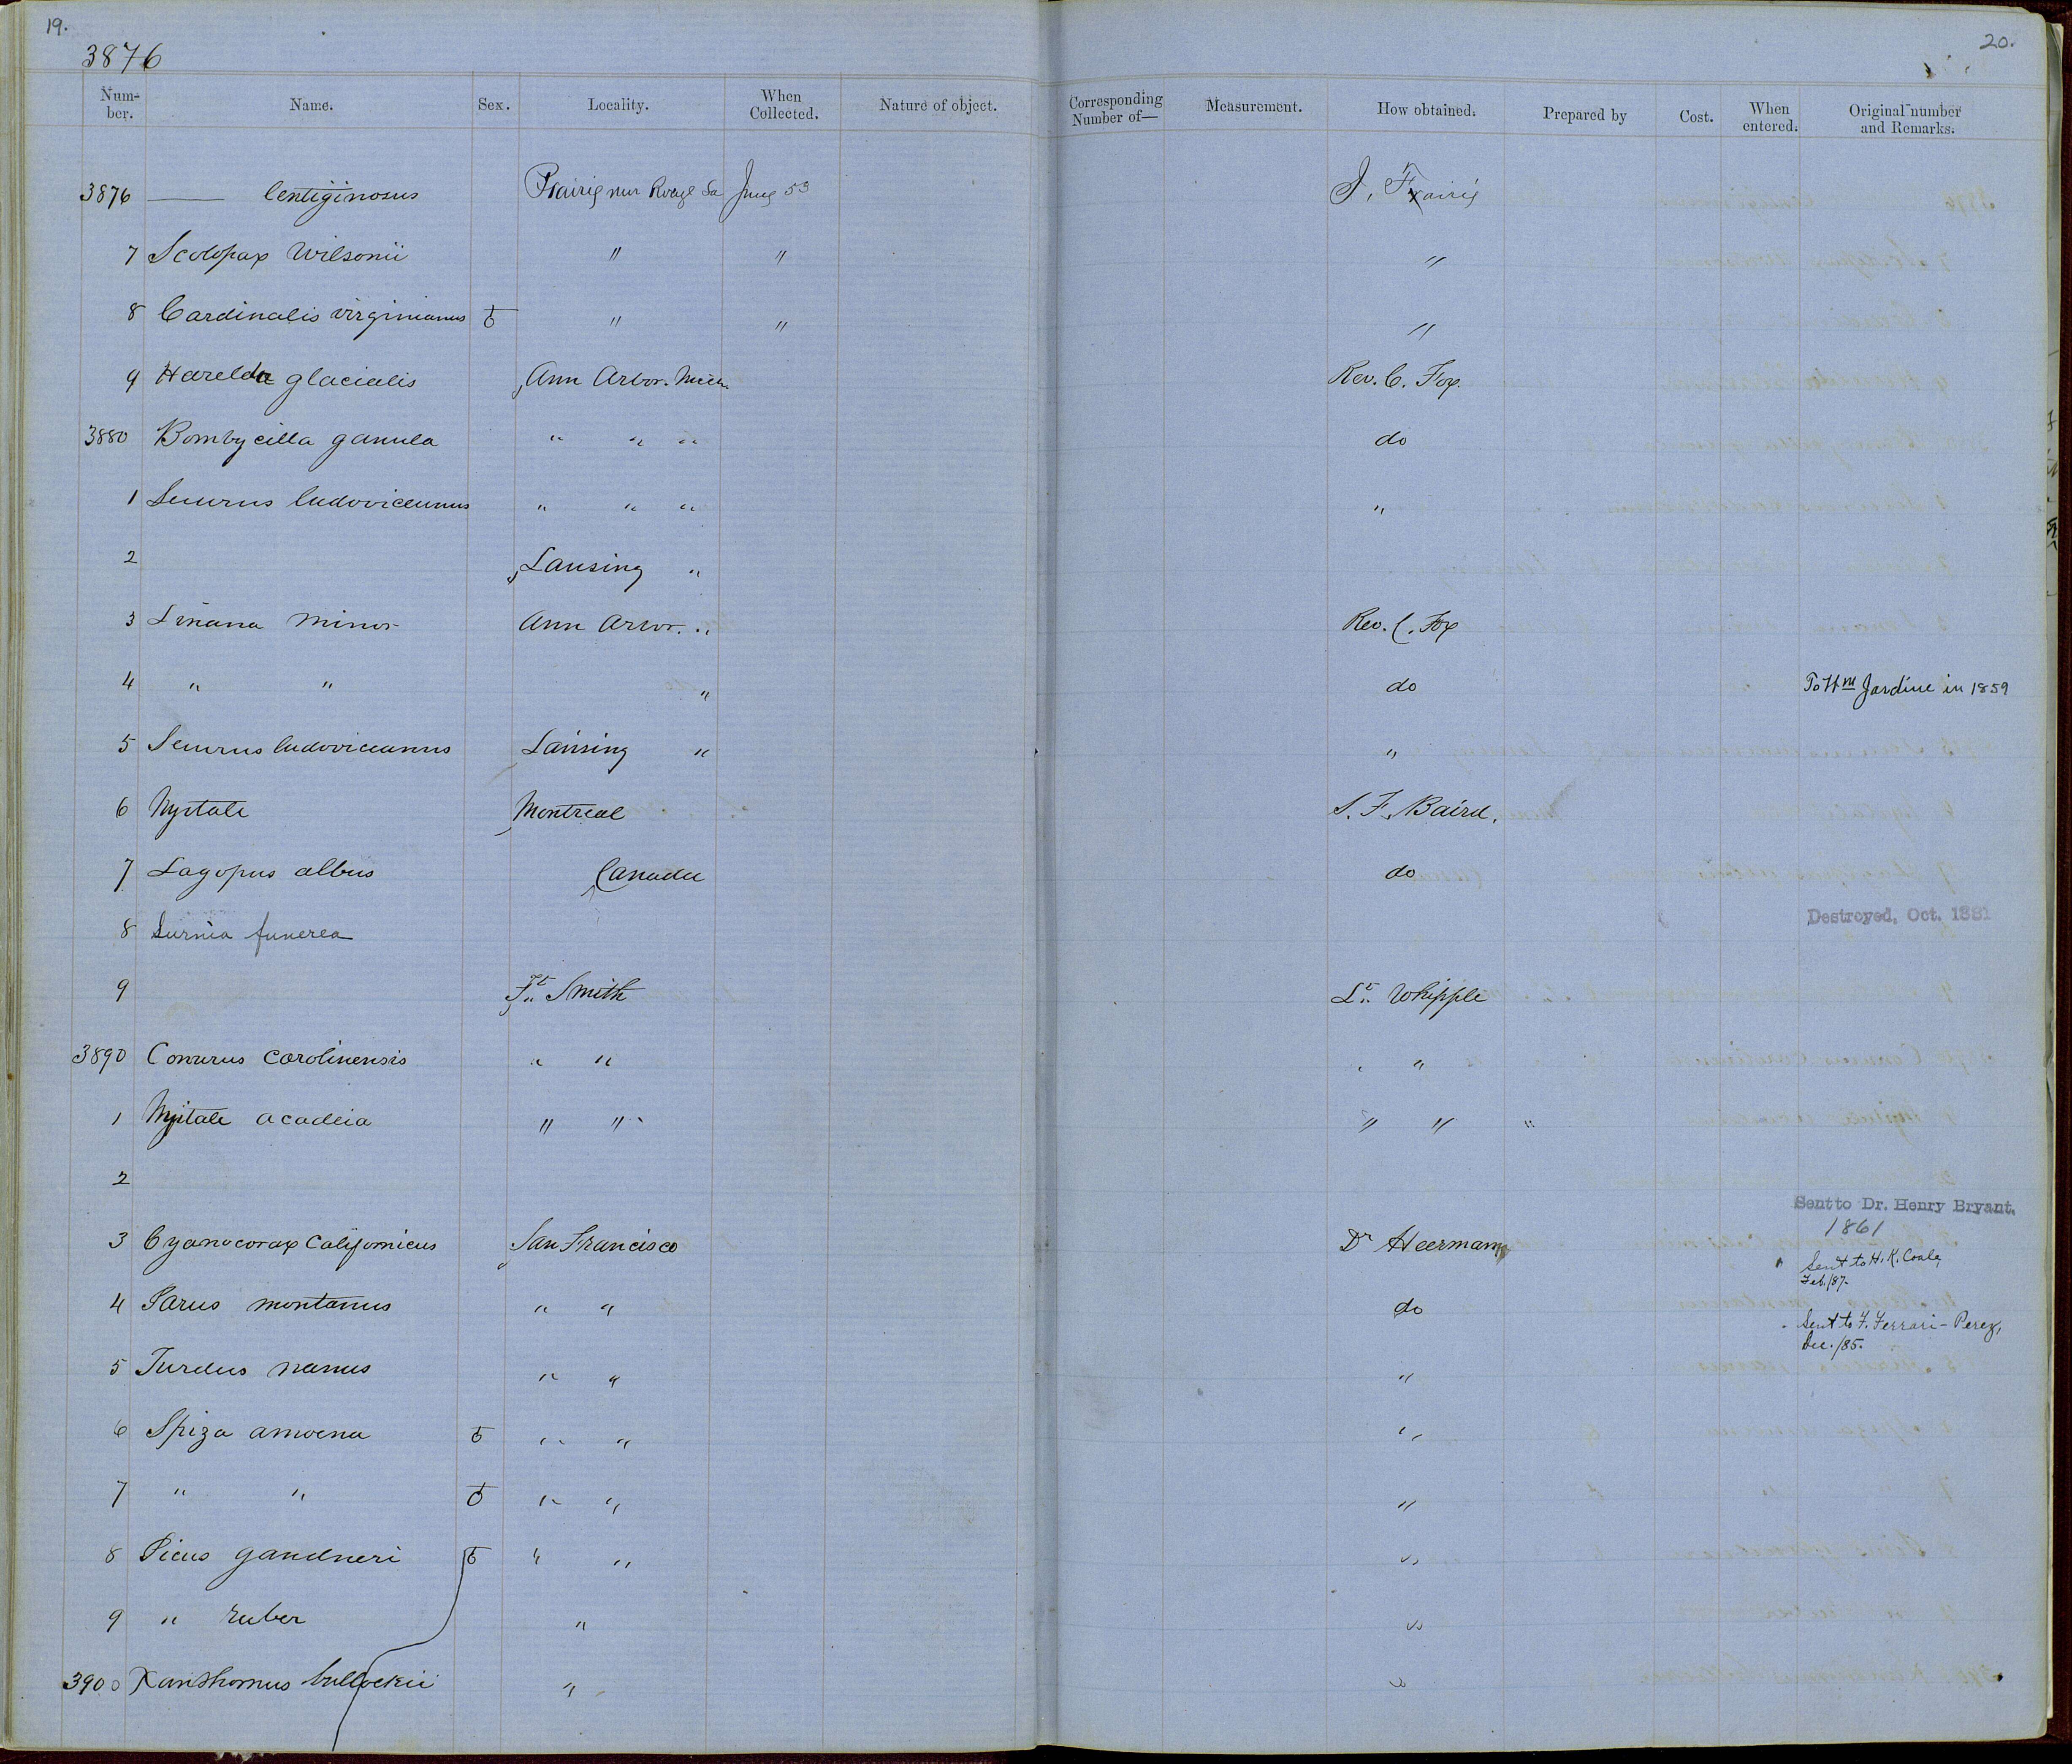 19.
20.
3876
Num-ber. Name. Sex. Locality. When Collected. Nature of object. Corresponding Number of— Measurement. How obtained. Prepared by Cost. When entered. Original number and Remarks.
3876 —— lentiginosus Prairie mer Rouge La June 53 J. Fairie
7 Scolopax Wilsonii " " "
8 Cardinalis virginianus ♂ " " "
9 Harelda glacialis Ann Arbor. Mich. Rev. C. Fox.
3880 Bombycilla garrula " " " do
1 Seiurus ludovicianus " " " "
2 Lansing "
3 Linaria minor Ann Arbor. " Rev. C. Fox
4 " " " do To Wm Jardine in 1859
5 Seiurus ludovicianus Lansing " "
6 Nyctale Montreal S. F. Baird.
7 Lagopus albus Canada do
8 Surnia funerea Destroyed, Oct. 1881
9 Ft. Smith Lt. Whipple
3890 Conurus carolinensis " " " "
1 Nyctale acadica " " " " "
2
Sent to Dr. Henry Bryant.
1861
3 Cyanocorax Californicus San Francisco Dr Heermann Sent to H. K. Coale, Feb./87.
4 Parus montanus " " do Sent to F. Ferrari-Perez, Dec./85.
5 Turdus nanus " " "
6 Spiza amoena ♂ " " "
7 " " ♂ " " "
8 Picus gardneri ♂ " " "
9 " ruber " "
3900 Xanthornus bullockii " "